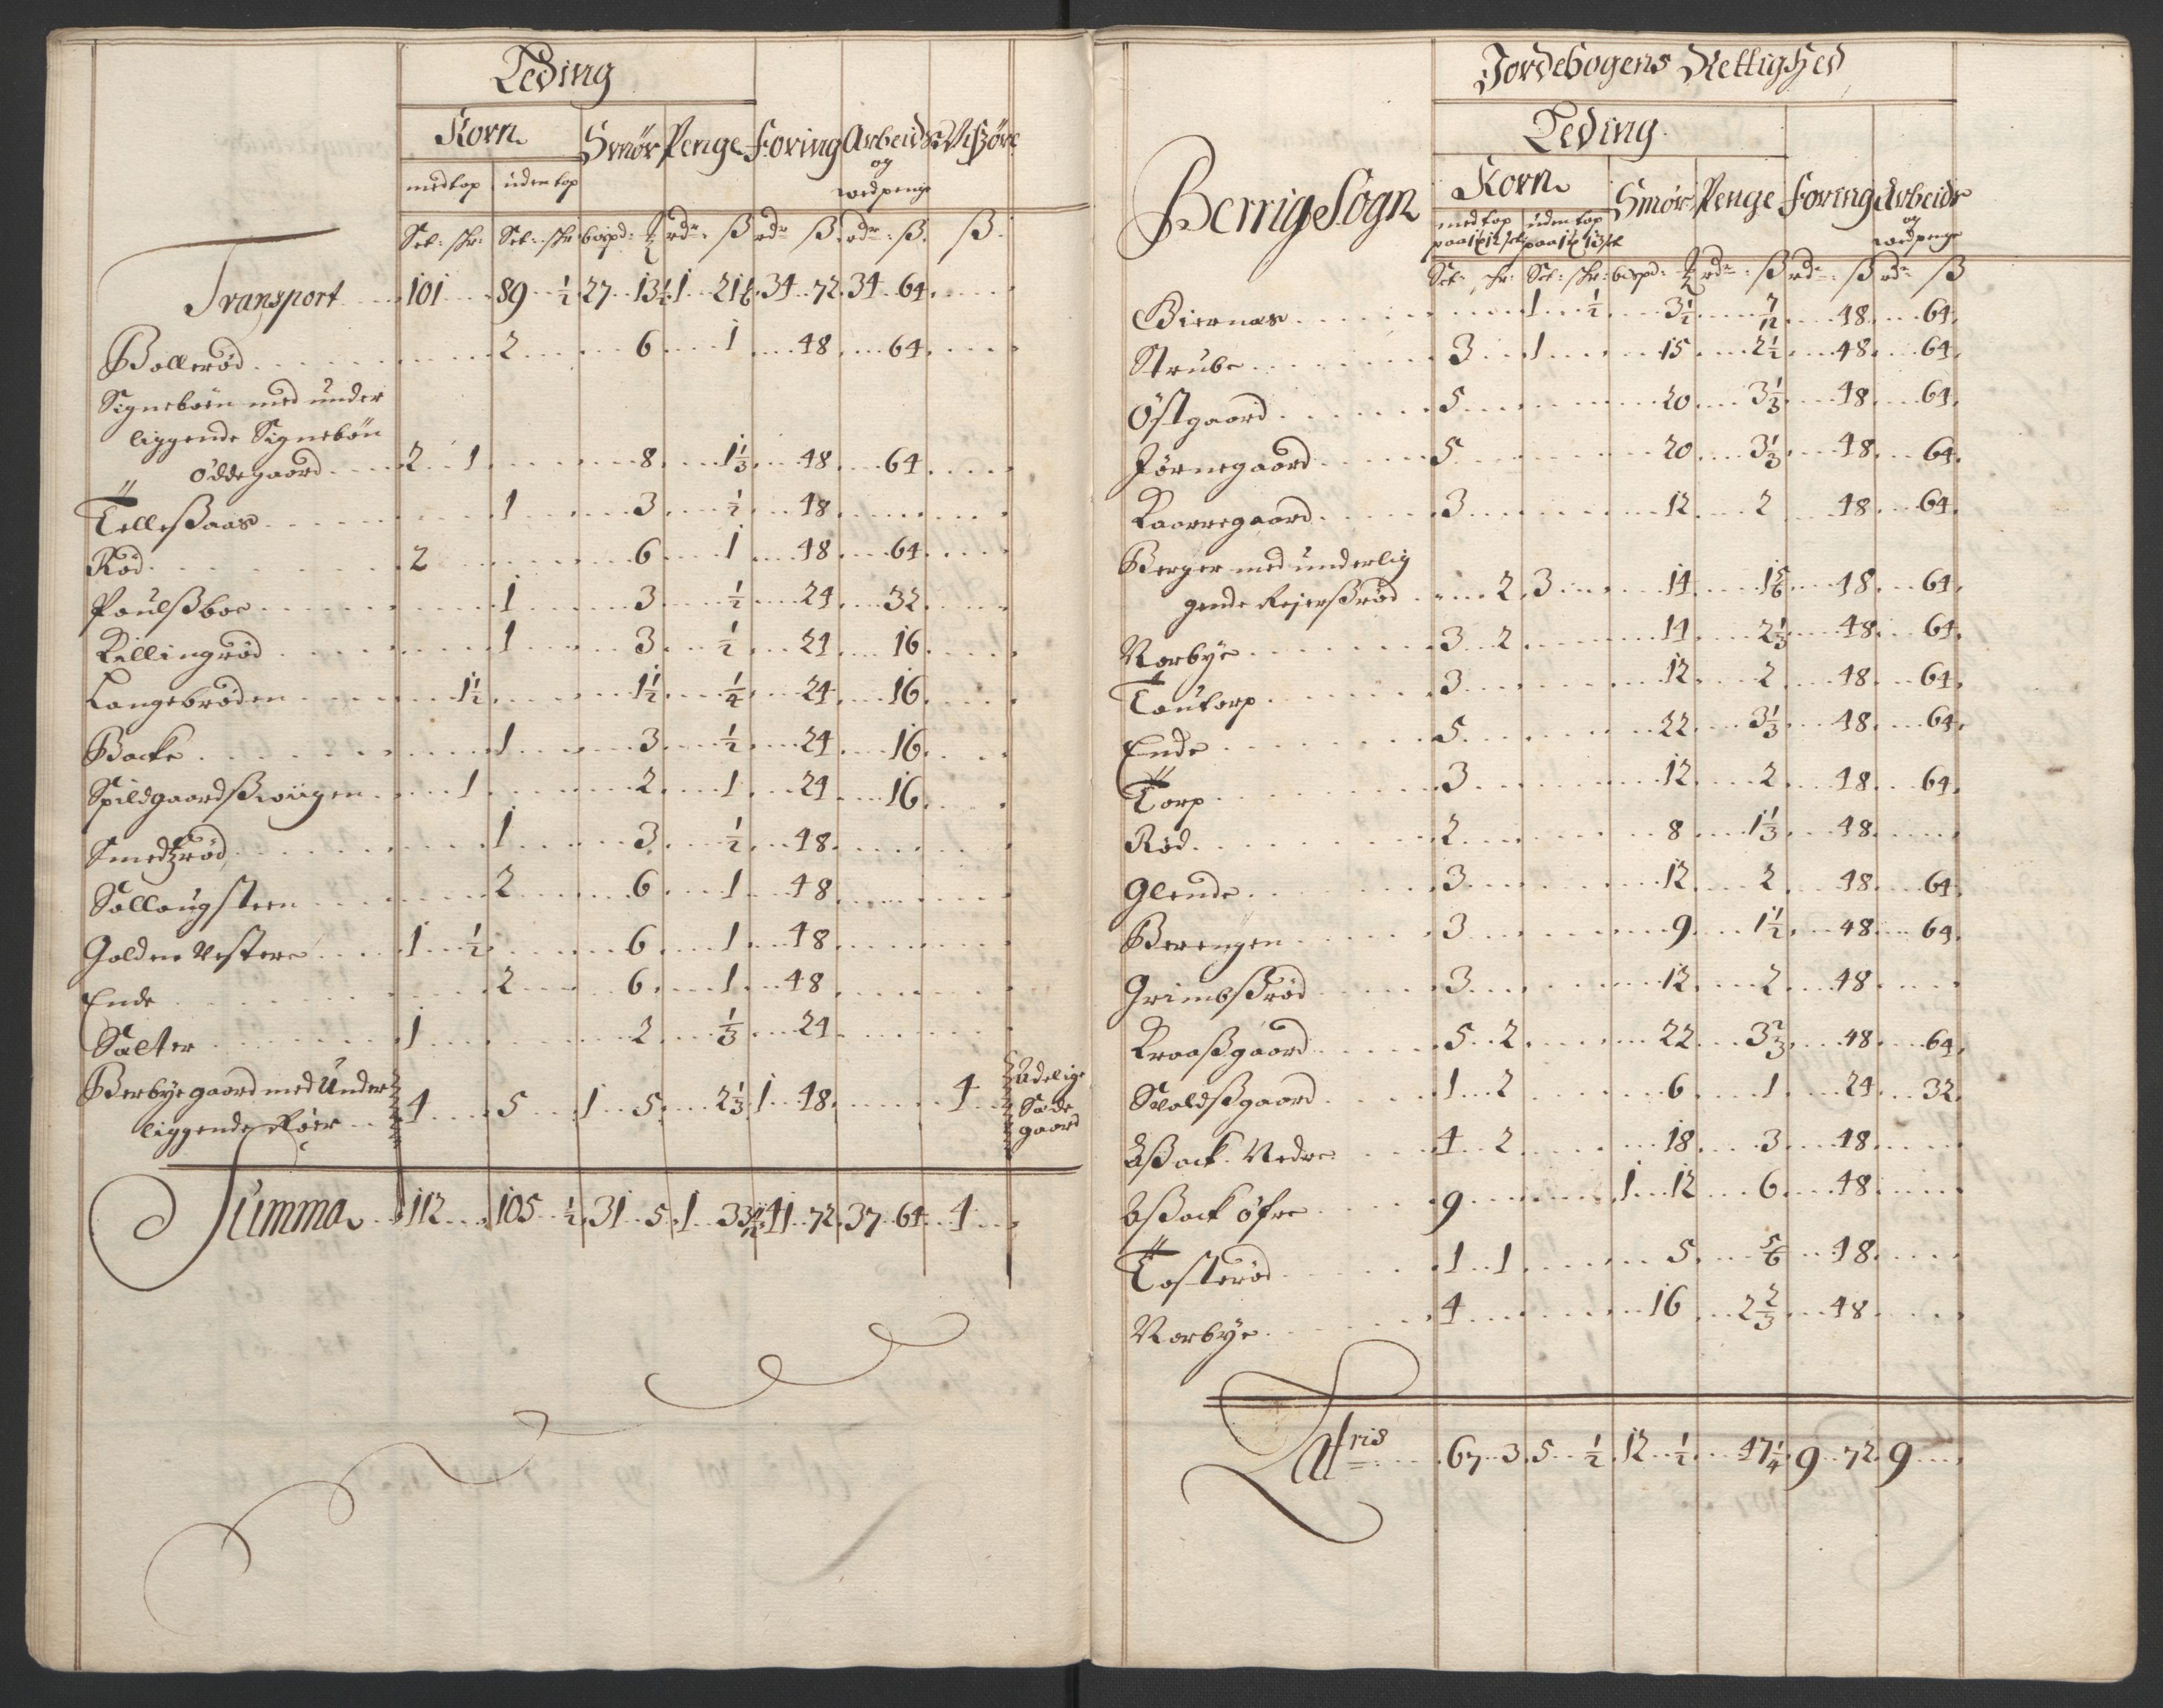 Leding
Korn Smör Penge Foring Arbeids Wißöre
med top uden top og wed penge
Set: skr: Set: skr bispd: ℔ rdr: ß rdr ß rdr: ß. ß.
Transport 101 89 ½ 27 13½ 1 21⅙ 34 72 34 64
Bollerød 2 6 1 48 64
Signeböen med under
liggende Signebön
ödde gaard 2 1 8 1⅓ 48 64
Telleßaas 1 3 ½ 48
Röd 2 6 1 48 64
Poulßboe 1 3 ½ 24 32
Killingröd 1 3 ½ 24 16
Langebröden 1½ 1½ ¼ 24 16
Backe 1 3 ½ 24 16
Spildgaardßwiigen 1 2 1 24 16
Smedzröd 1 3 ½ 48
Sollougsteen 2 6 1 48
Golden Westere 1 ½ 6 1 48
Ende 2 6 1 48
Sälter 1 2 ⅓ 24
Berbye gaard med Under
liggende Röer 4 5 1 5 2⅓ 1 48 4 Adelige
Sæde
gaard
Summa 112 105 ½ 31 5 1 33 41 72 37 64 4
Jordebogens Rettighed
Leding
Berrig Sogn Korn Smör Penge Foring Arbeids
med top uden top og wed penge
Set: skr: Set: skr: bispd: ℔ rdr: ß rdr: ß rdr ß
Biernæs 1 ½ 3½ 7/12 48 64
Strube 3 1 15 2½ 48 64
Östgaard 5 20 3⅓ 48 64
Jörnegaard 5 20 3⅓ 48 64
Kaarregaard 3 12 2 48 64
Berger med underlig
gende Rejerßröd 2 3 14 1⅚ 48 64
Norbye 3 2 14 2⅓ 48 64
Toutorp 3 12 2 48 64
Ende 5 22 3⅓ 48 64
Torp 3 12 2 48 64
Röd 2 8 1⅓ 48
Glende 3 12 2 48 64
Berengen 3 9 1½ 48 64
Grimbßröd 3 12 2 48
Kraaßgaard 5 2 22 3⅔ 48 64
Skaldßgaard 1 2 6 1 24 32
Aßack Nedre 4 2 18 3 48
Aßack öfre 9 1 12 6 48
Tosteröd 1 1 5 ⅚ 48
Norbye 4 16 2⅔ 48
Latris 67 3 5 ½ 12 ½ 47¼ 9 72 9